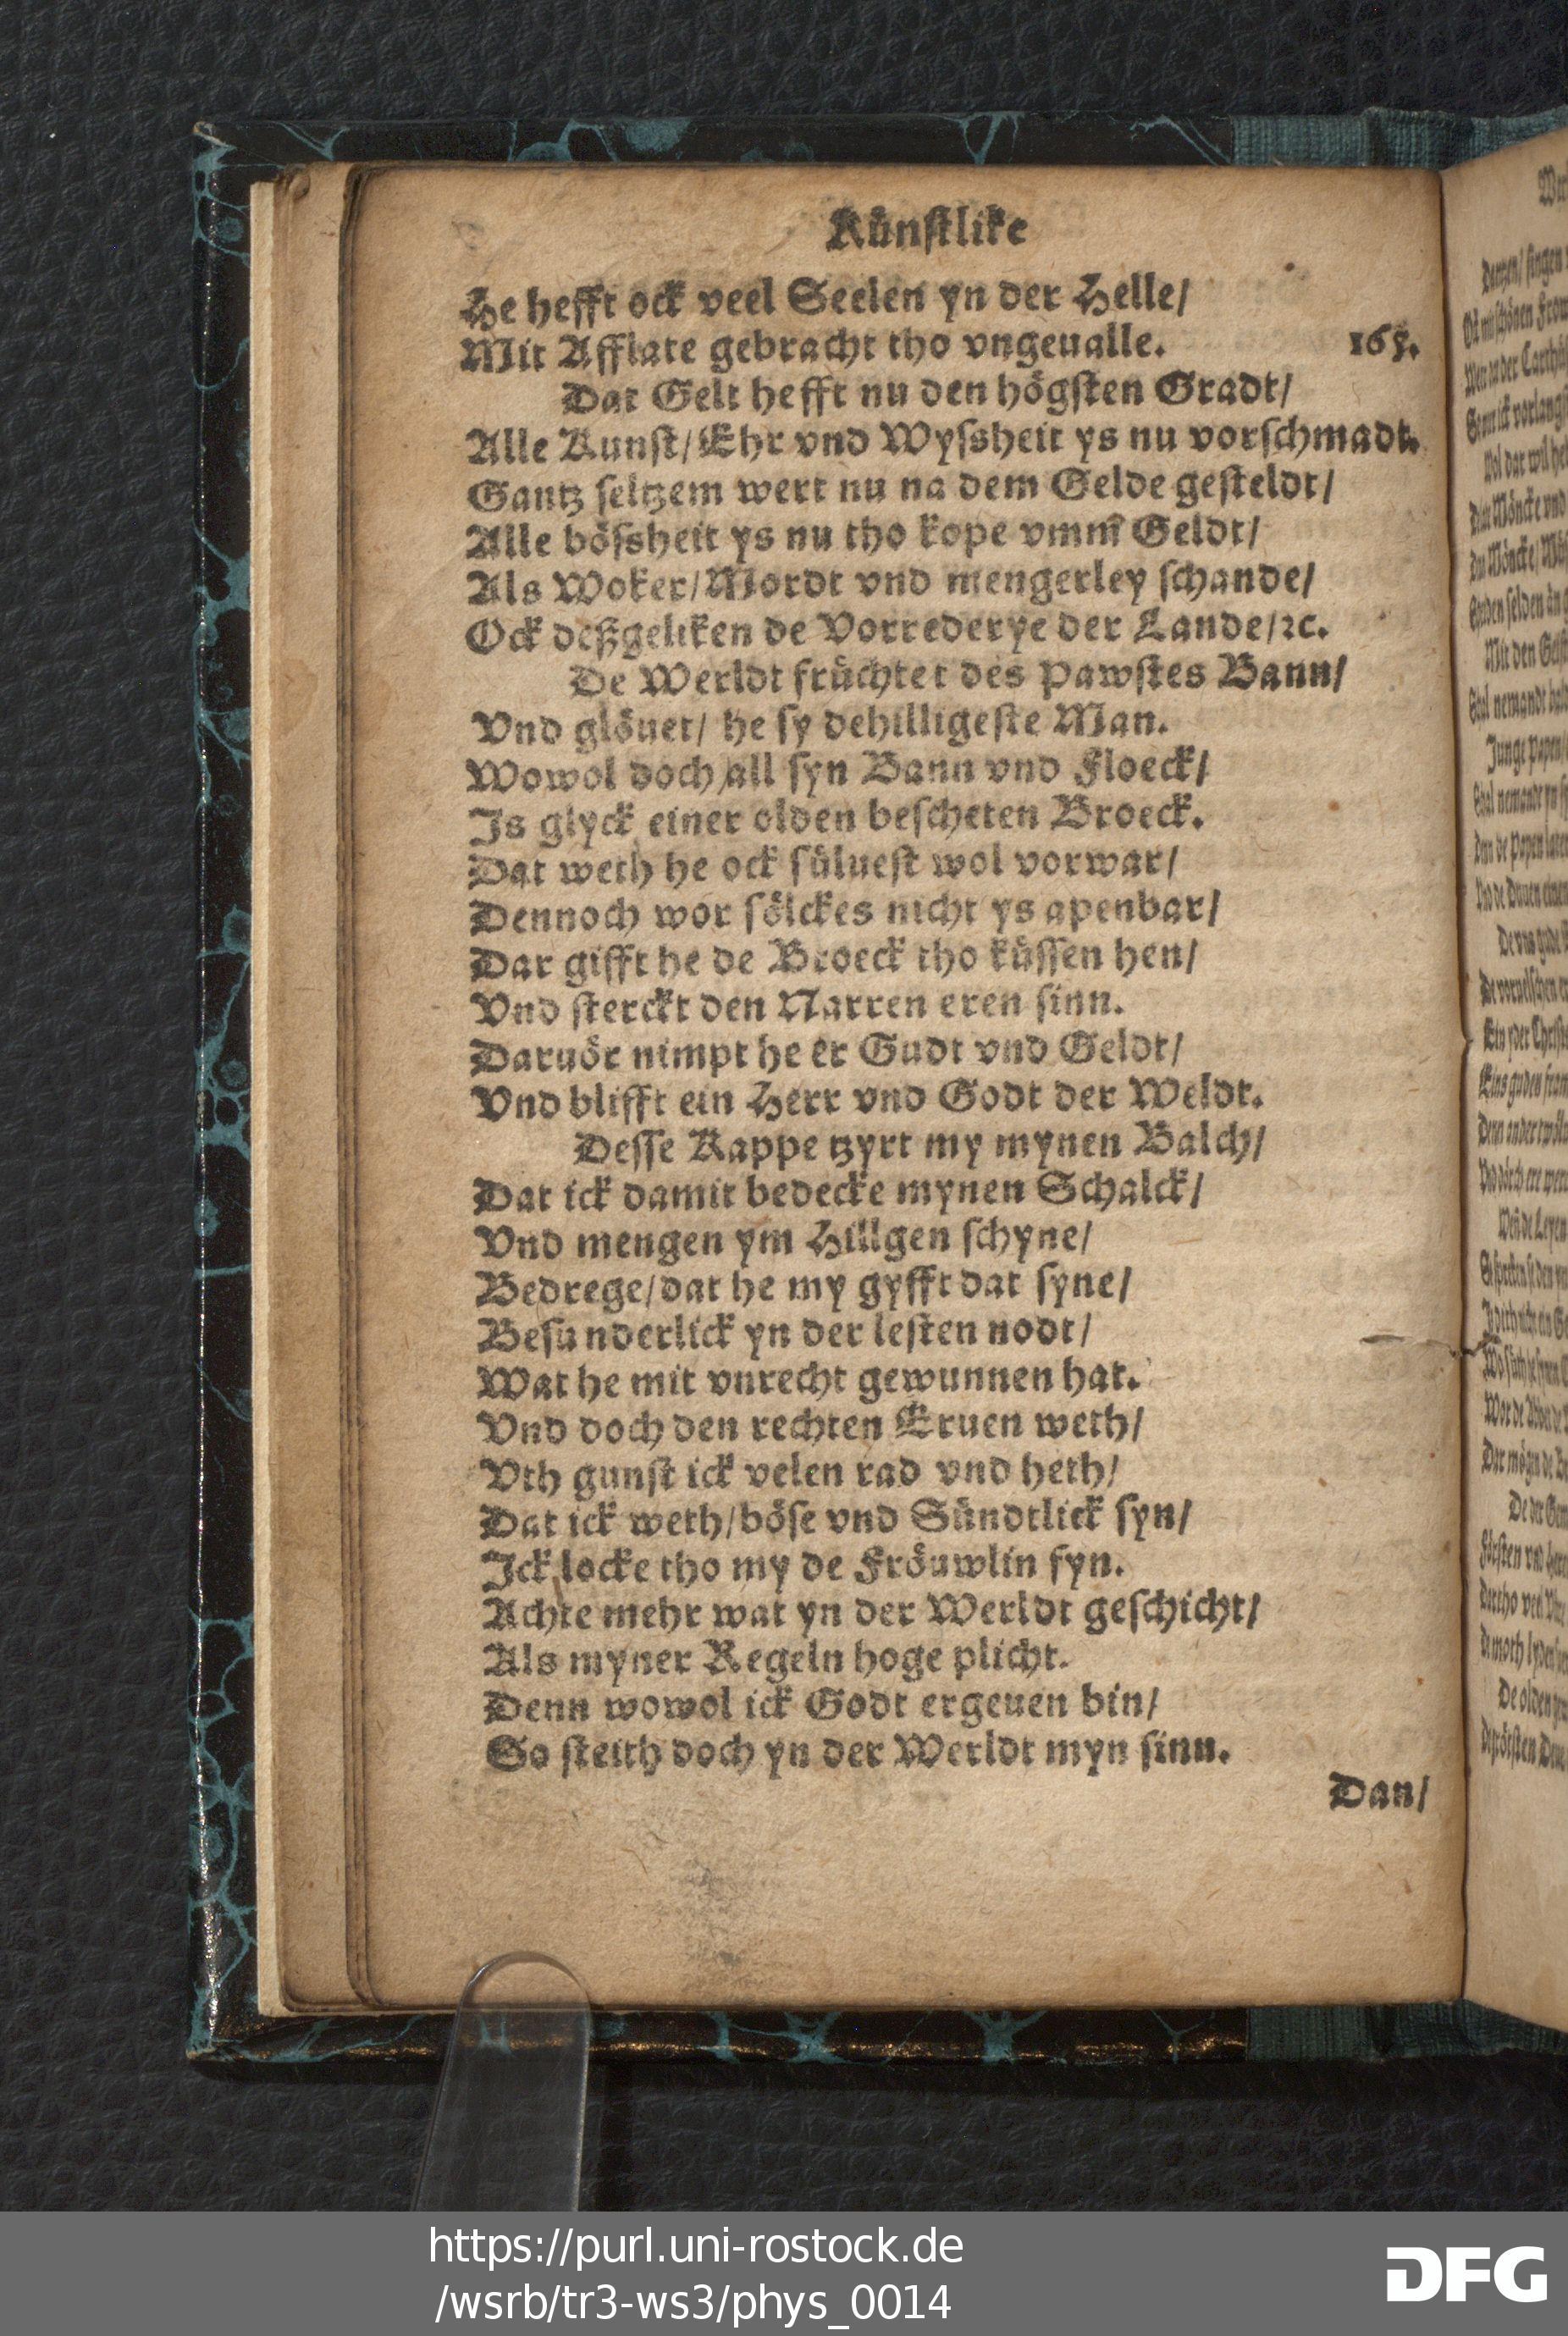 Künstlike
He hefft ock veel Seelen yn der Helle/
Mit Afflate gebracht tho vngeualle. 165.
Dat Gelt hefft nu den högsten Gradt/
Alle Kunst/Ehr vnd Wyssheit ys nu vorschmadt.
Gantz seltzem wert nu na dem Gelde gesteldt/
Alle bössheit ys nu tho kope vmm̄ Geldt/
Als Woker/Mordt vnd mengerley schande/
Ock deßgeliken de Vorrederye der Lande/ꝛc.
De Werldt früchtet des Pawstes Bann/
Vnd glöuet/ he sy dehilligeste Man.
Wowol doch all syn Bann vnd Floeck/
Is glyck einer olden bescheten Broeck.
Dat weth he ock süluest wol vorwar/
Dennoch wor sölckes nicht ys apenbar/
Dar gifft he de Broeck tho küssen hen/
Vnd sterckt den Narren eren sinn.
Daruör nimpt he er Gudt vnd Geldt/
Vnd blifft ein Herr vnd Godt der Weldt.
Desse Kappe tzyrt my mynen Balch/
Dat ick damit bedecke mynen Schalck/
Vnd mengen ym Hillgen schyne/
Bedrege/dat he my gyfft dat syne/
Besunderlick yn der lesten nodt/
Wat he mit vnrecht gewunnen hat.
Vnd doch den rechten Eruen weth/
Vth gunst ick velen rad vnd heth/
Dat ick weth/böse vnd Sündtlick syn/
Ick locke tho my de Fröuwlin fyn.
Achte mehr wat yn der Werldt geschicht/
Als myner Regeln hoge plicht.
Denn wowol ick Godt ergeuen bin/
So steith doch yn der Werldt myn sinn.
Dan/
https://purl.uni-rostock.de
/wsrb/tr3-ws3/phys_0014
DFG